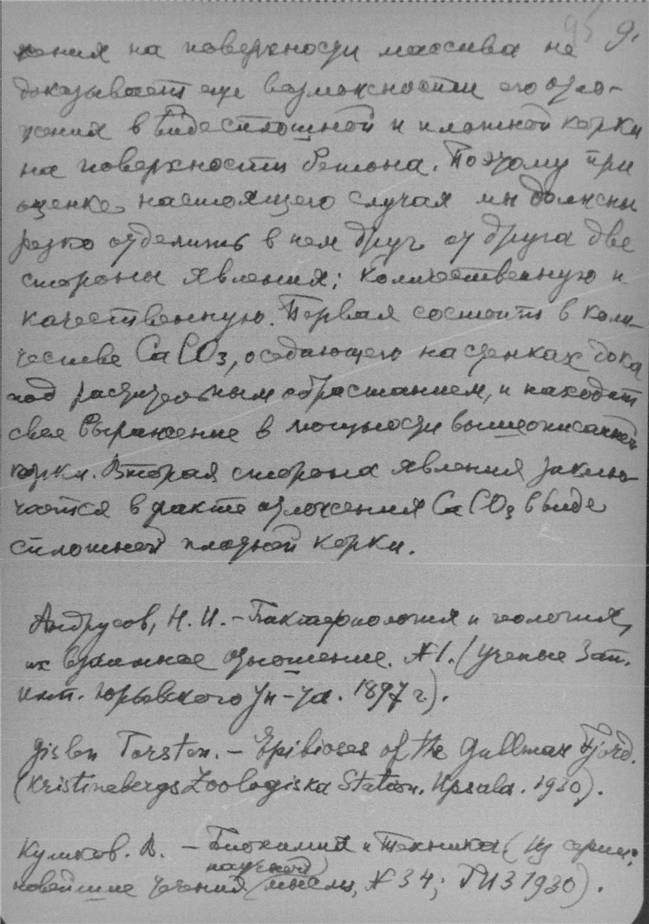 95 9.
жения на поверхности массива не
доказывает еще возможности его отло-
жения в виде сплошной и плотной корки
на поверхности бетона. Поэтому при
оценке настоящего случая мы должны
резко отделить в нем друг от друга две
стороны явления: количественную и
качественную. Первая состоит в коли-
честве CaCO3, оседающего на стенках дока
под растительным обрастанием, и находит
свое выражение в мощности вышеописанной
корки. Вторая сторона явления заклю-
чается в факте отложения CaCO3 в виде
сплошной плотной корки.
Андрусов, Н. И. – Бактериология и геология,
их взаимное отношение. №1. (Ученые Зап.
Имп. Юрьевского Ун-та. 1897 г.).
Gislen Torsten. – Epibioses of the Gullmar Fjord.
(Kristinebergs Zoologiska Station. Upsala. 1930).
В. – Биохимия и техника (Из серии:
новейшие течения научной мысли, № 34; ГИЗ 1930).